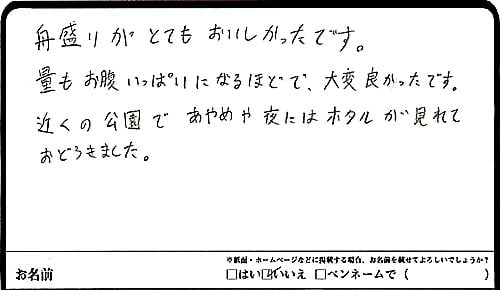 舟盛りがとてもおいしかったです。
量もお腹いっぱいになるほどで、大変良かったです。
近くの公園であやめや夜にはホタルが見れて
おどろきました。
※紙面・ホームページなどに掲載する場合、お名前を載せてよろしいでしょうか?
お名前 □はい ☑いいえ □ペンネームで ( )